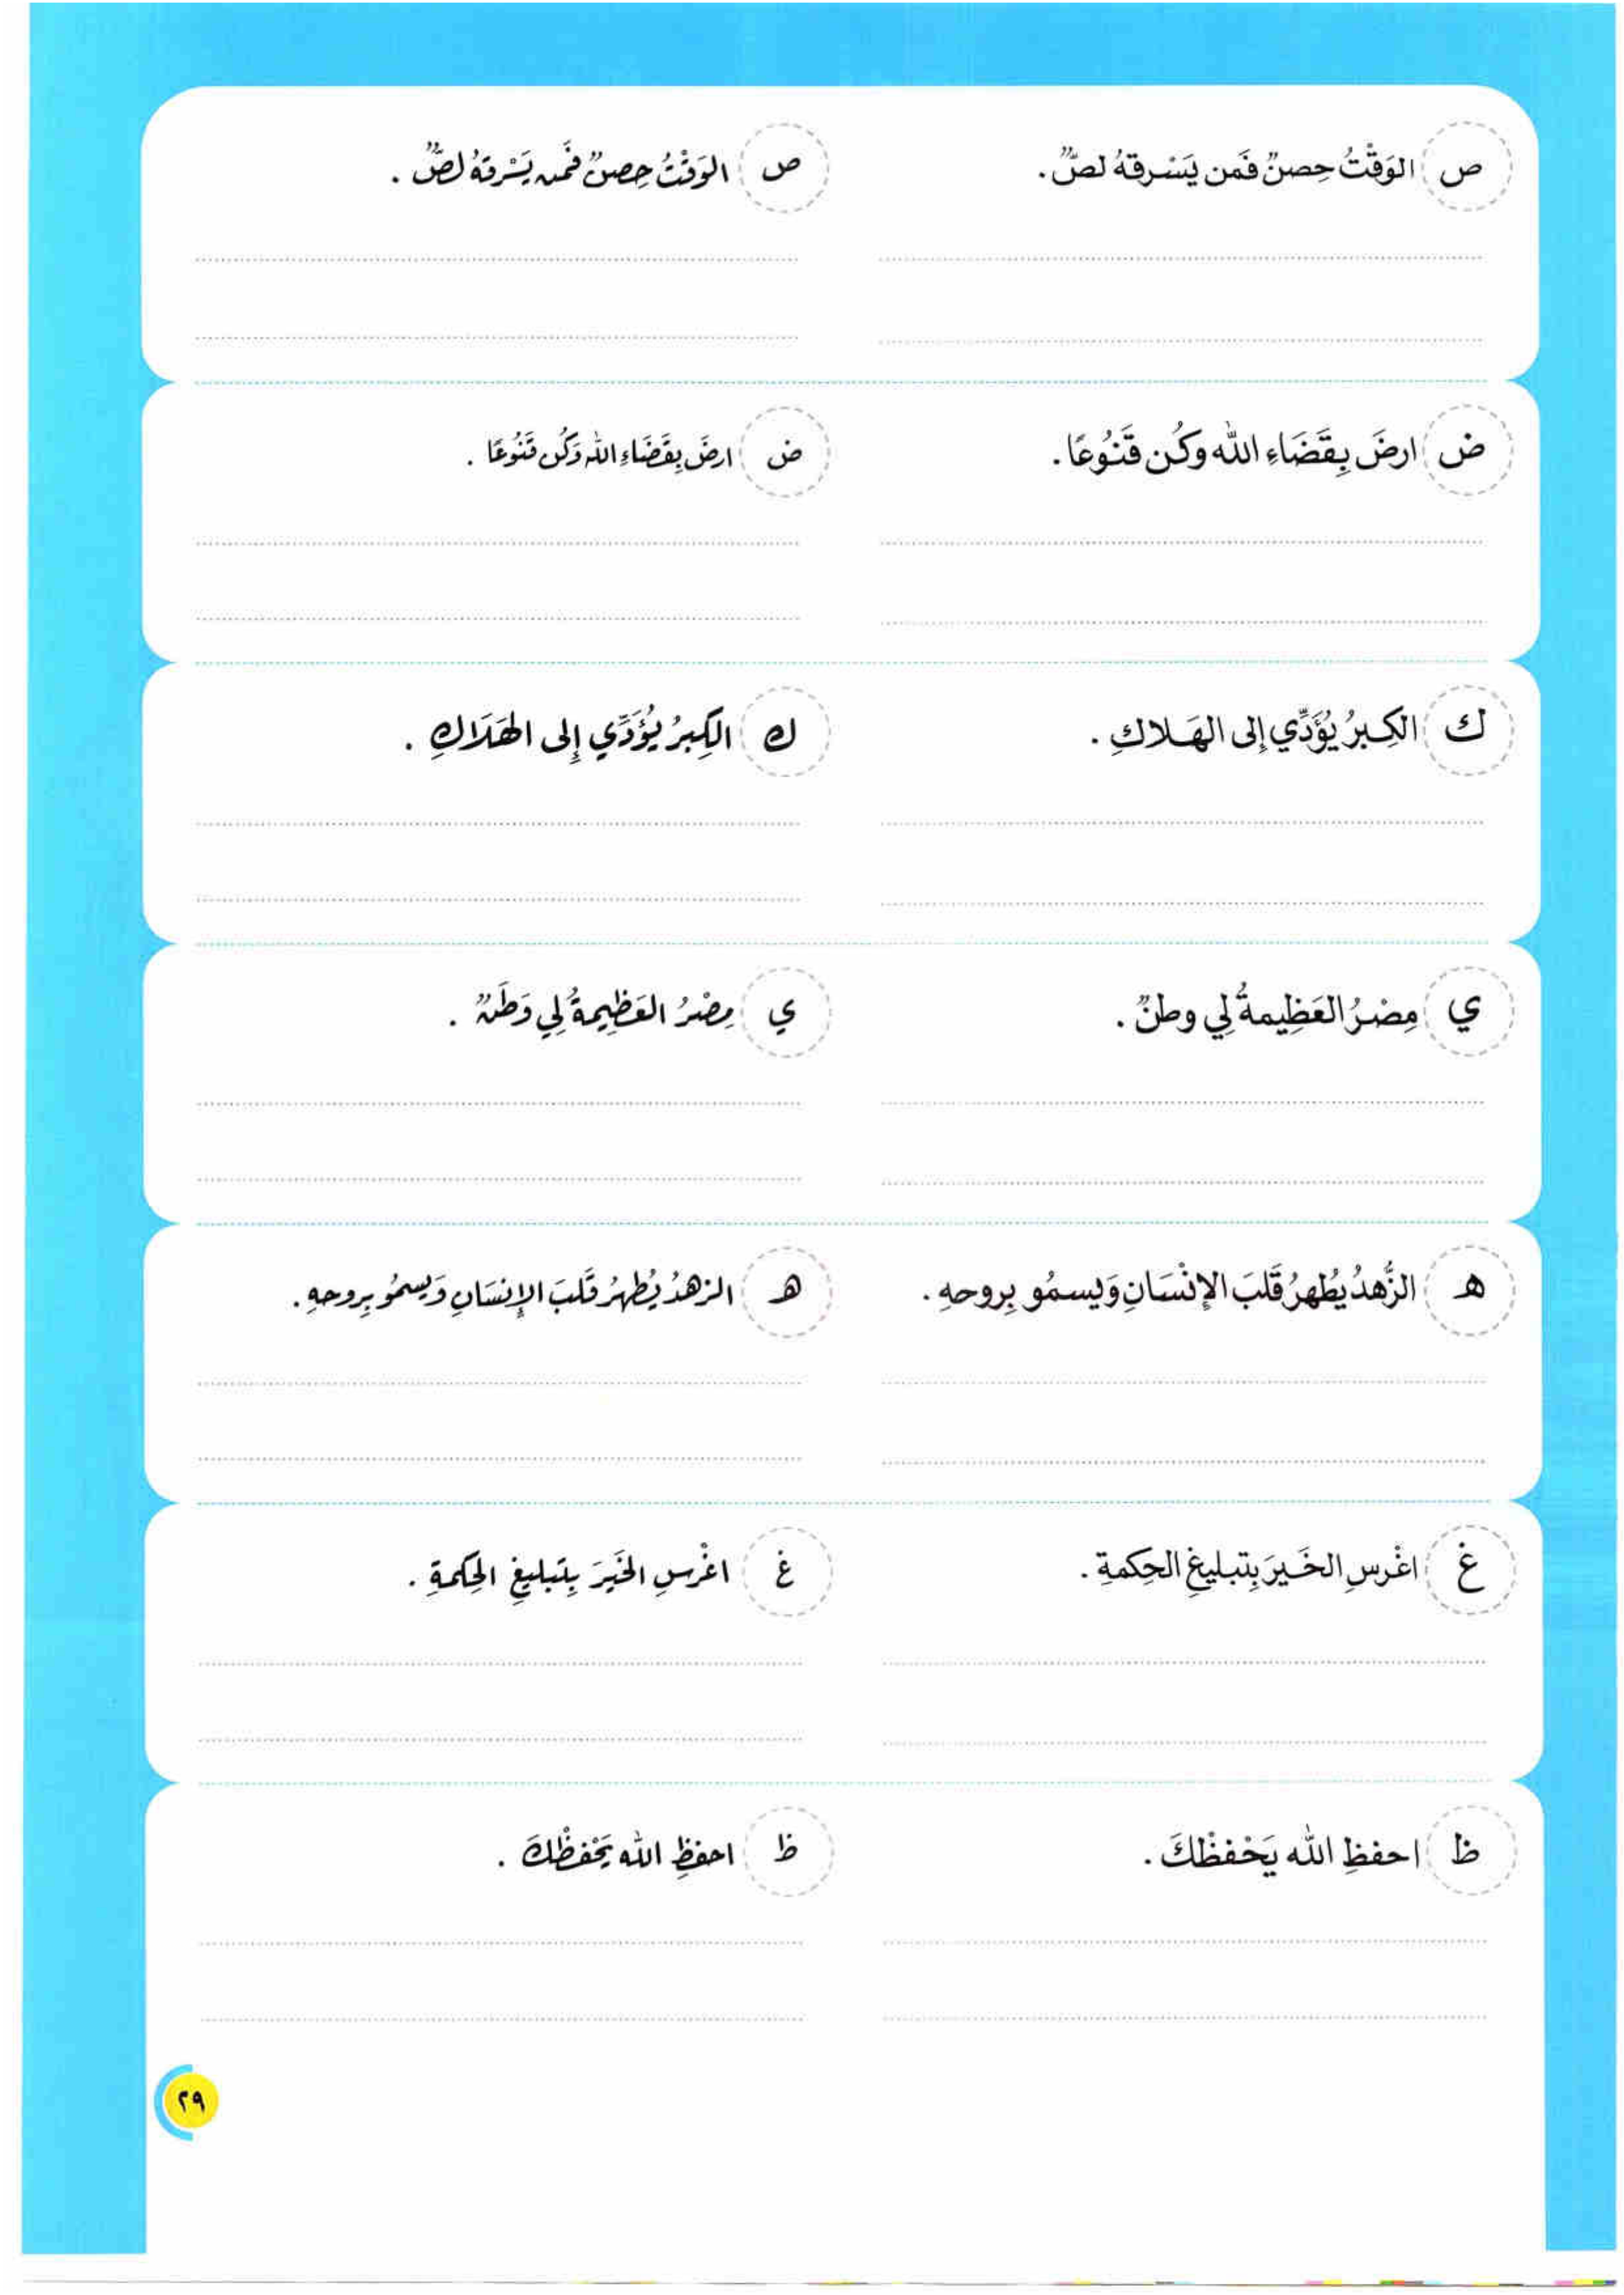 ص الوَقْتُ حِصنٌ فَمَن يَسْرقهُ لصٌّ.
ص الوَقْتُ حِصنٌ فَمَن يَسْرقهُ لصٌّ.
ض ارضَ بِقَضَاءِ الله وكُن قَنُوعًا.
ض ارضَ بِقَضَاءِ الله وَكُن قَنُوعًا.
ك الكِبرُ يُؤَدِّي إِلى الهَلاكِ.
ك الكِبرُ يُؤَدِّي إِلى الهَلَاكِ.
ي مِصْرُ العَظِيمةُ لِي وطنٌ.
ي مِصْرُ العَظِيمةُ لِي وَطَنٌ.
هـ الزُّهدُ يُطهرُ قَلبَ الإِنْسَانِ وَيسمُو بِروحهِ.
هـ الزهدُ يُطهرُ قَلبَ الإِنسَانِ وَيسمُو بِروحهِ.
غ اغْرسِ الخَيرَ بِتبليغِ الحِكمةِ.
غ اغْرسِ الخَيرَ بِتبليغِ الحِكمةِ.
ظ احفظِ الله يَحْفظْكَ.
ظ احفظِ الله يَحْفظْكَ.
٢٩